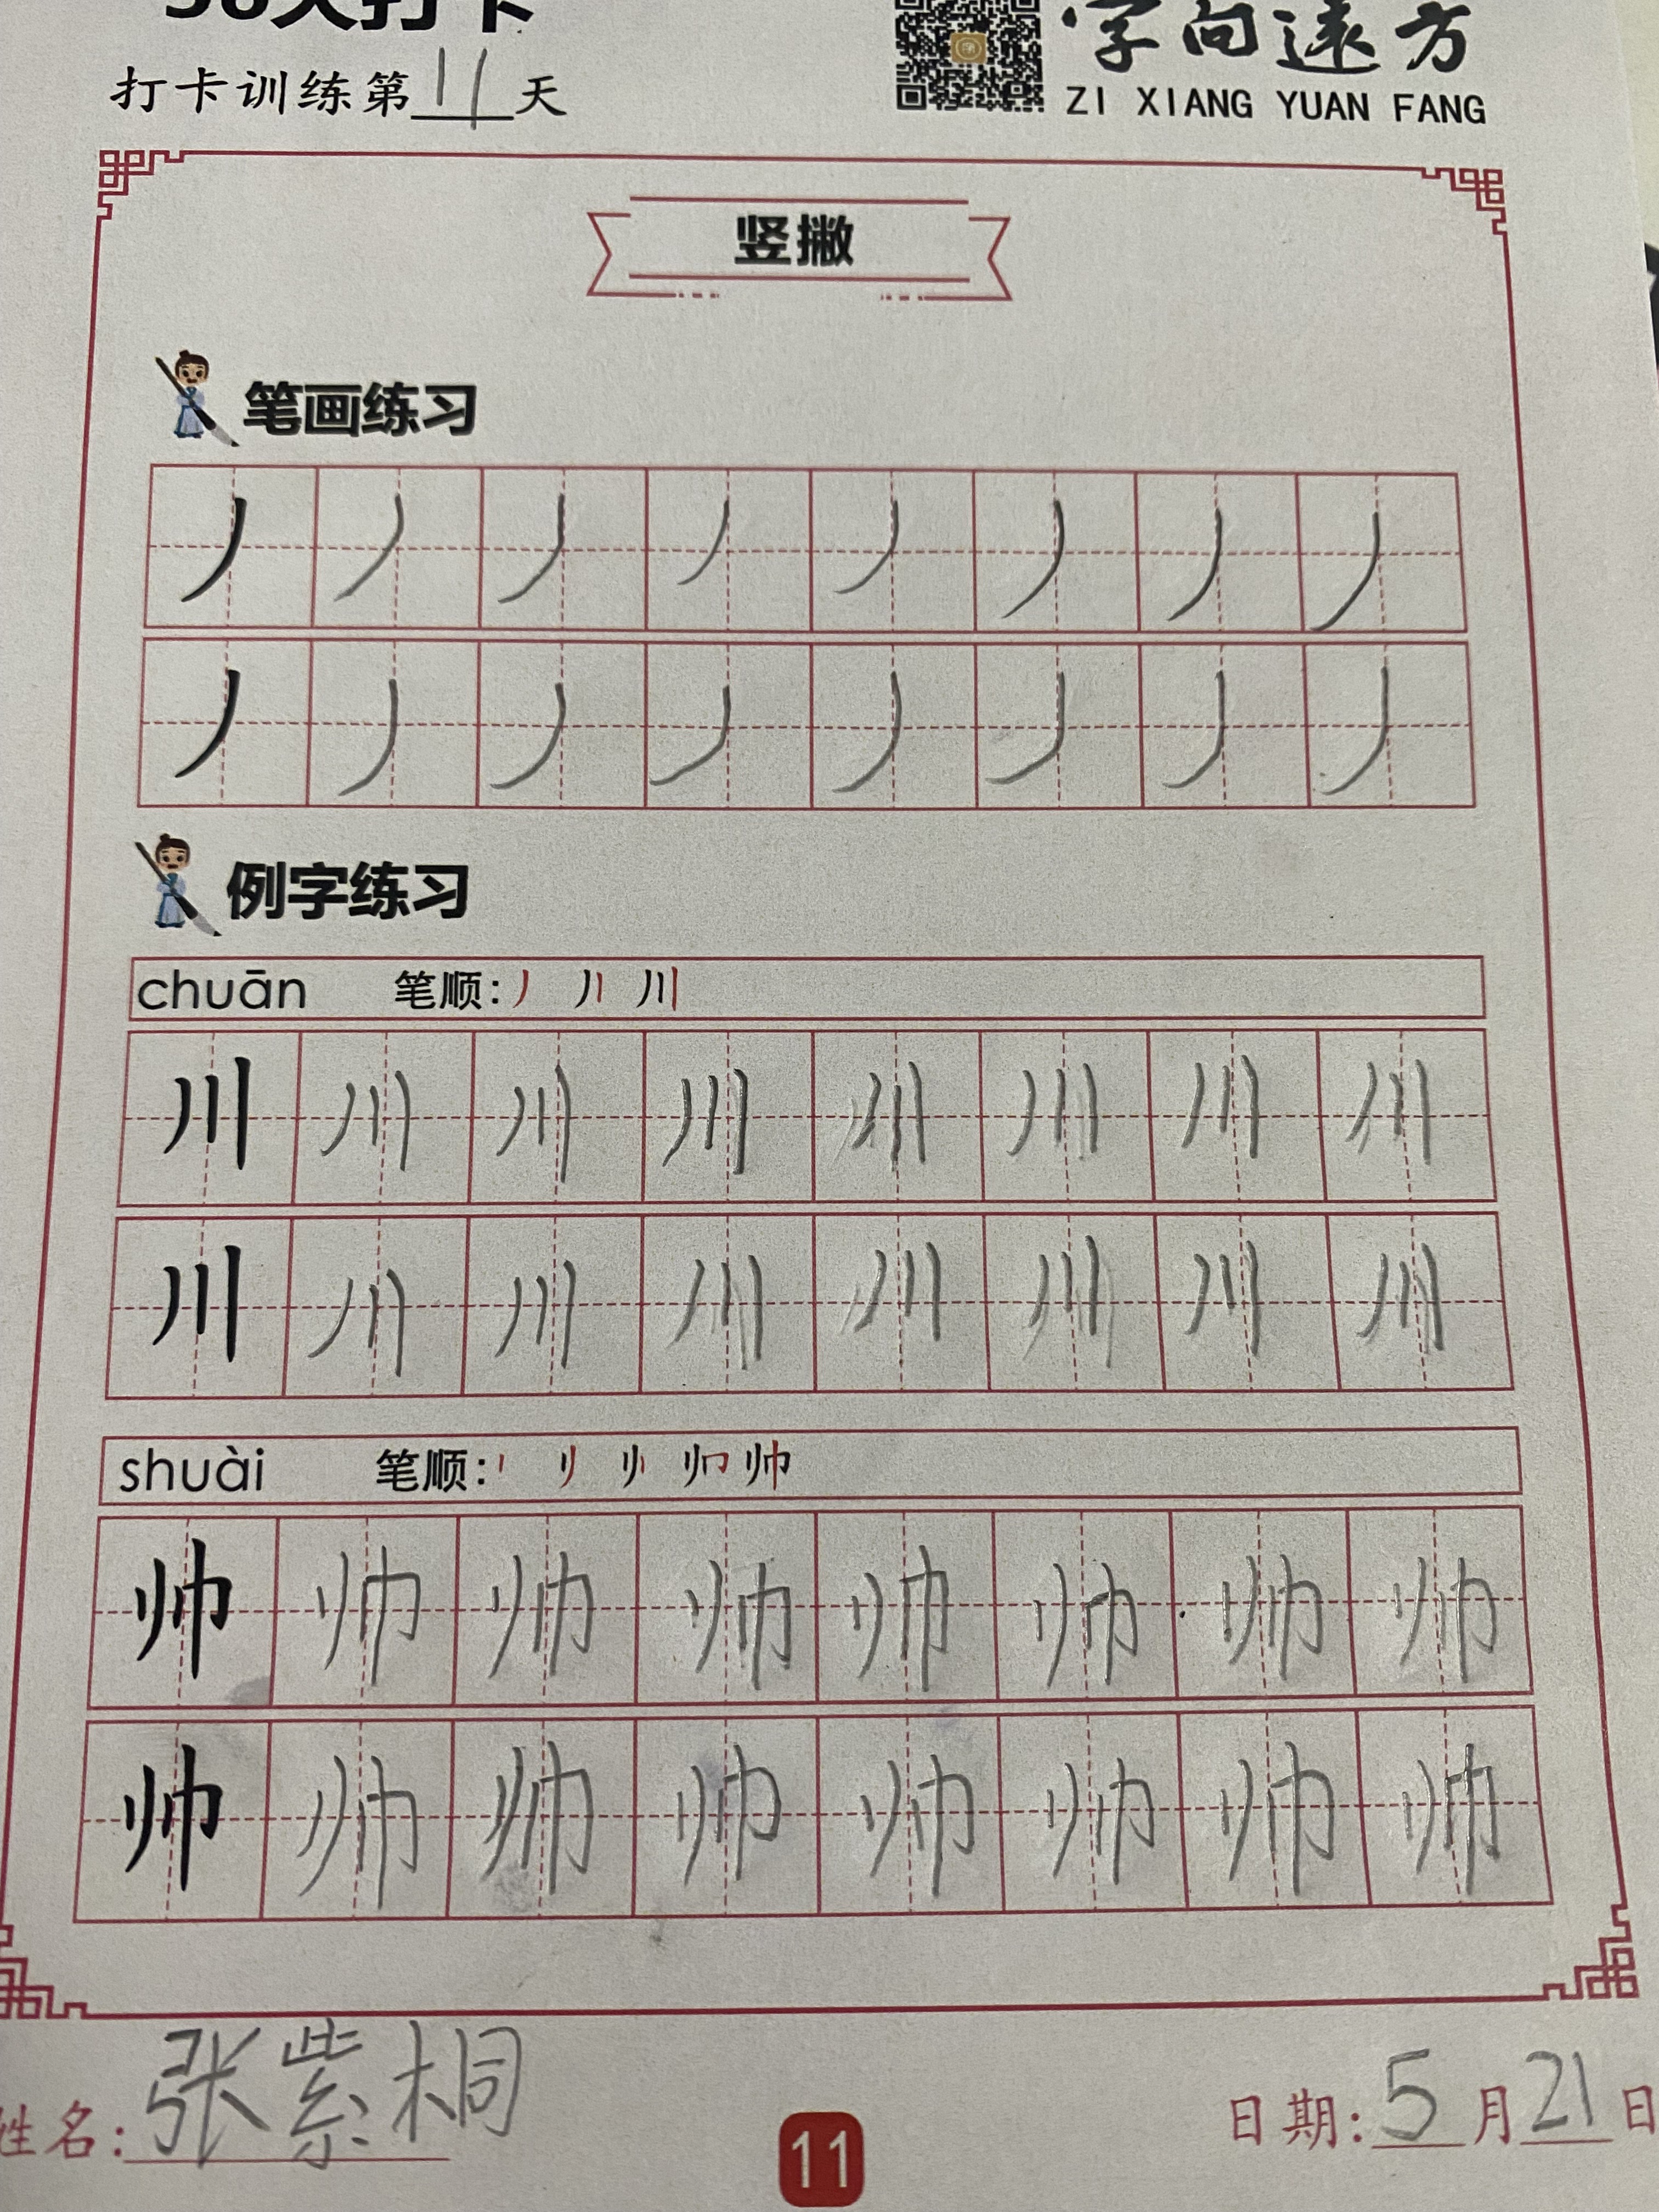 打卡训练第11天
字向远方
ZI XIANG YUAN FANG
竖撇
笔画练习
丿 丿 丿 丿 丿 丿 丿 丿
丿 丿 丿 丿 丿 丿 丿 丿
例字练习
chuān 笔顺: 川
川 川 川 川 川 川 川 川
川 川 川 川 川 川 川 川
shuài 笔顺: 帅
帅 帅 帅 帅 帅 帅 帅 帅
帅 帅 帅 帅 帅 帅 帅 帅
姓名: 张紫桐
11
日期: 5月21日